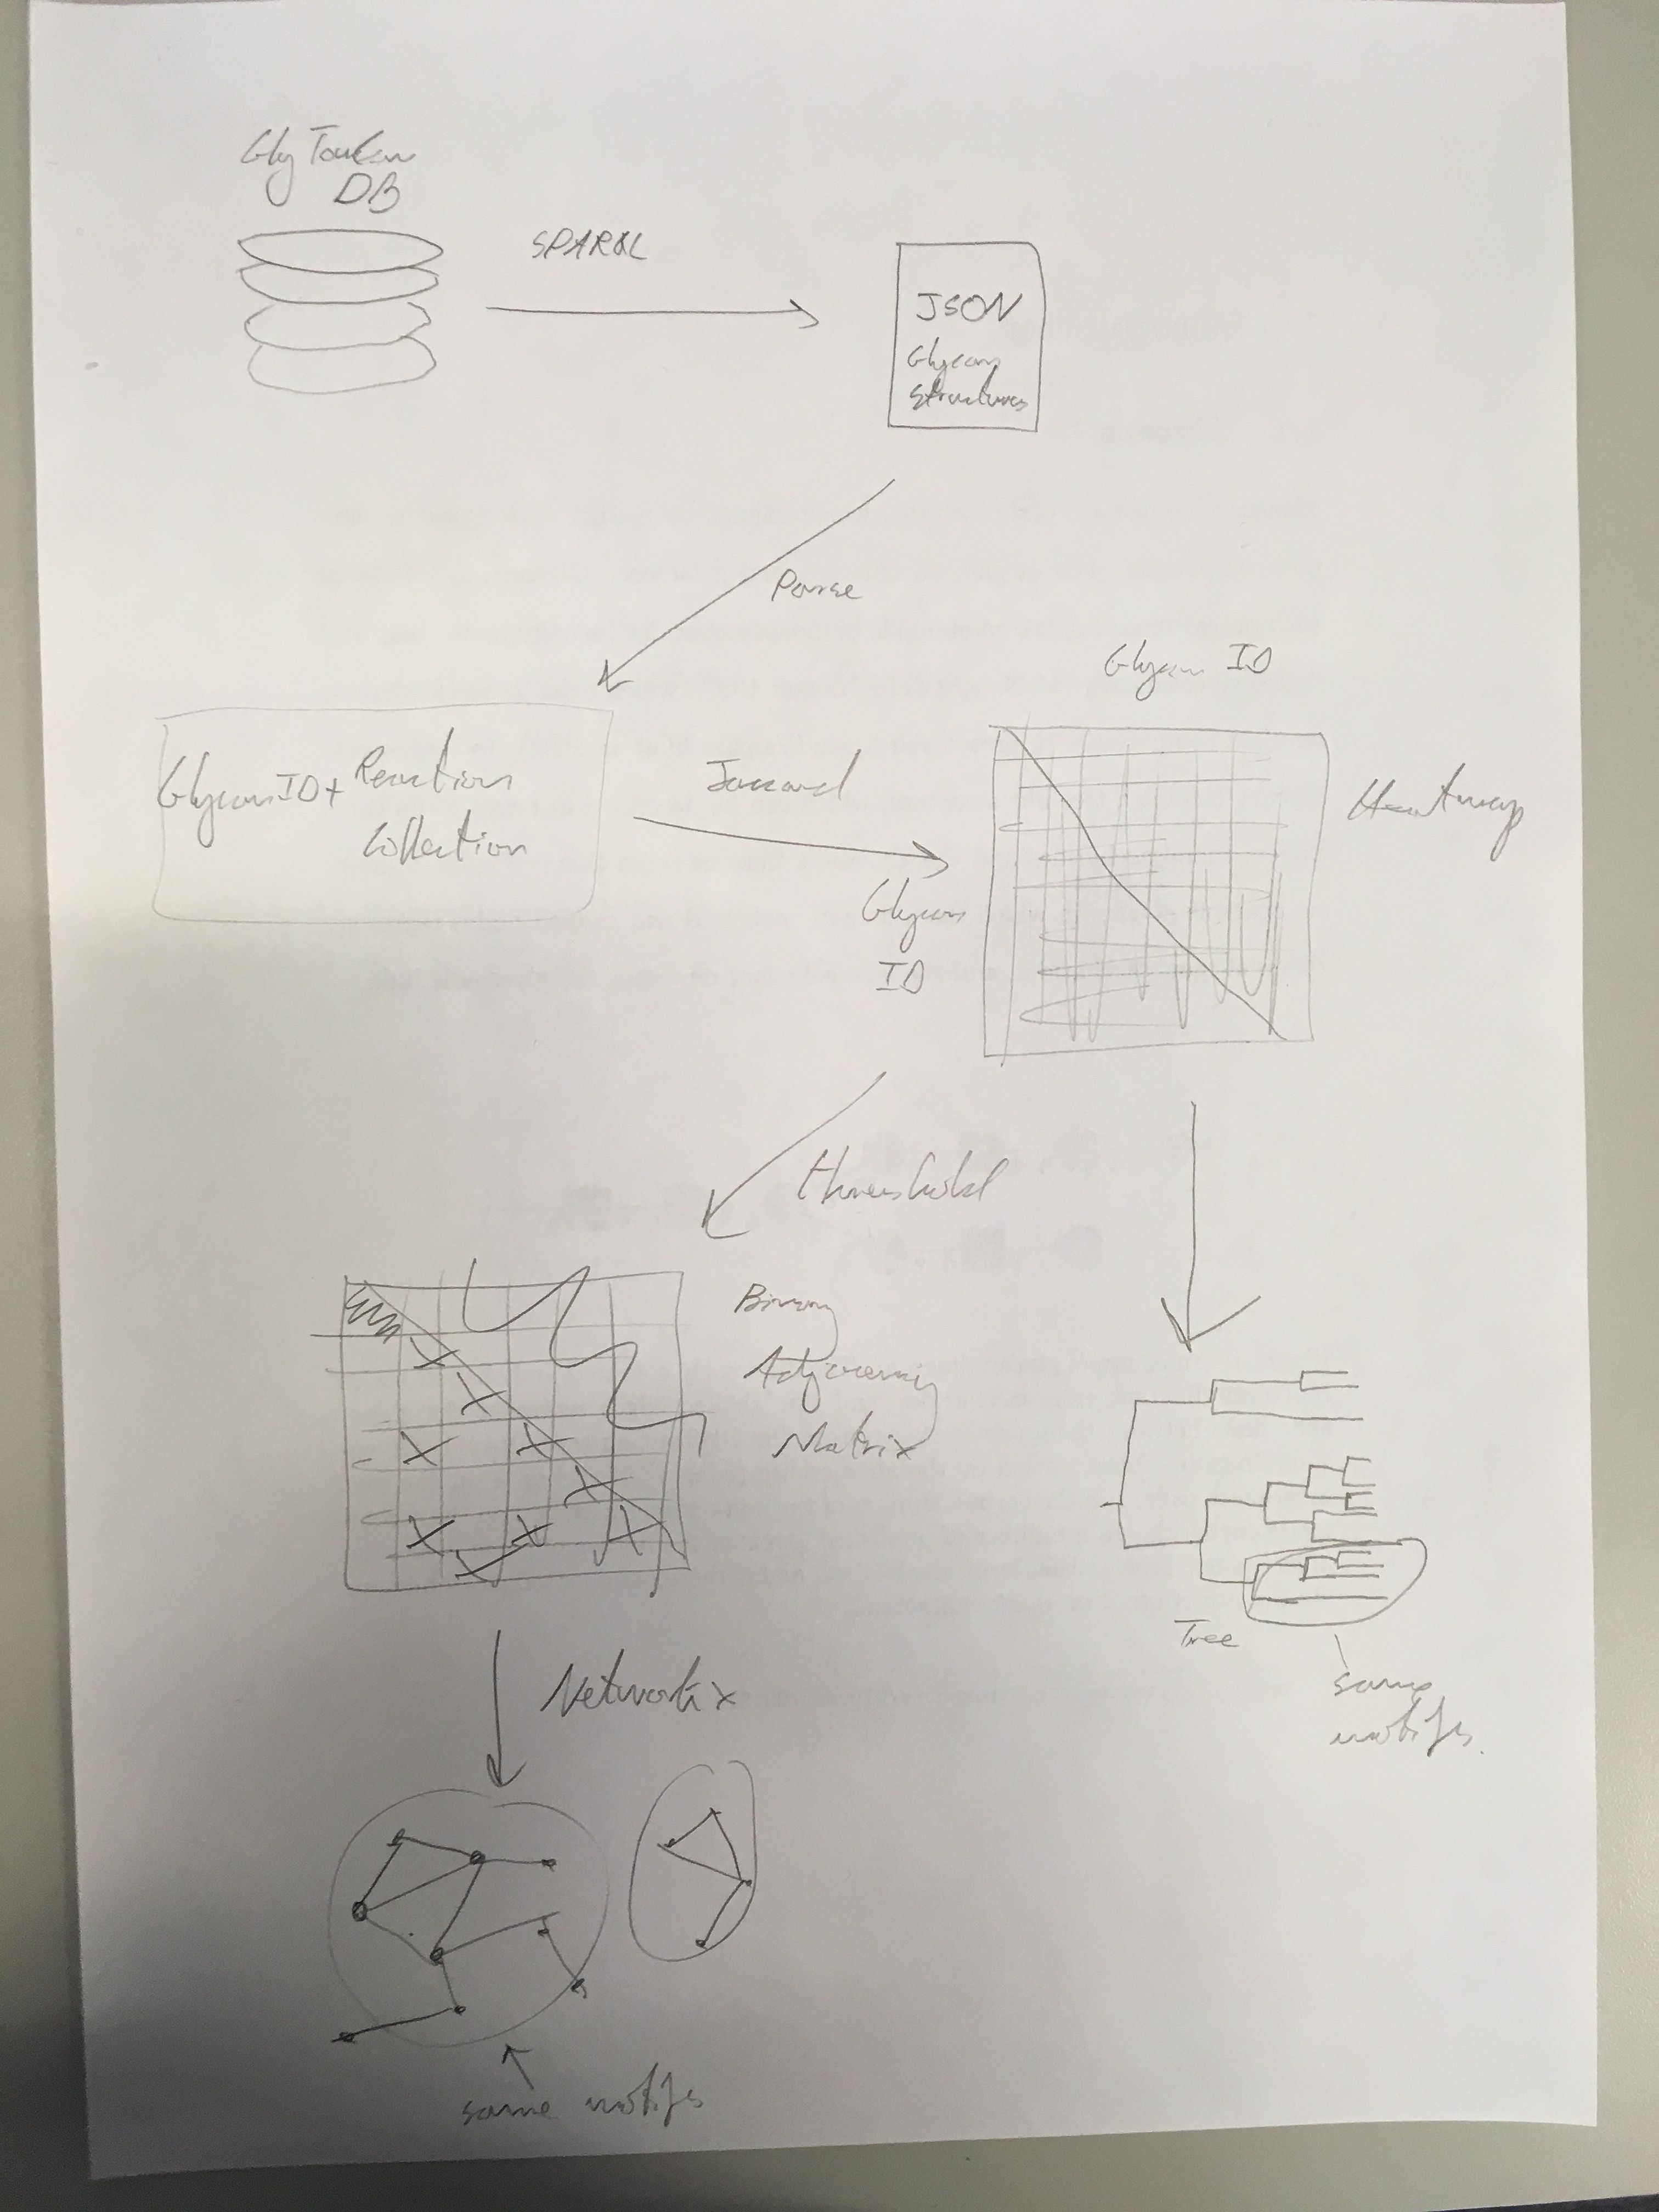 GlyTouCan
DB
SPARQL
JSON
Glycan
Structures
Parse
Glycan ID + Reaction
Collection
Jaccard
Glycan ID
Heatmap
Glycan
ID
threshold
Binary
Adjacency
Matrix
Tree
same
motifs.
Networkx
same motifs